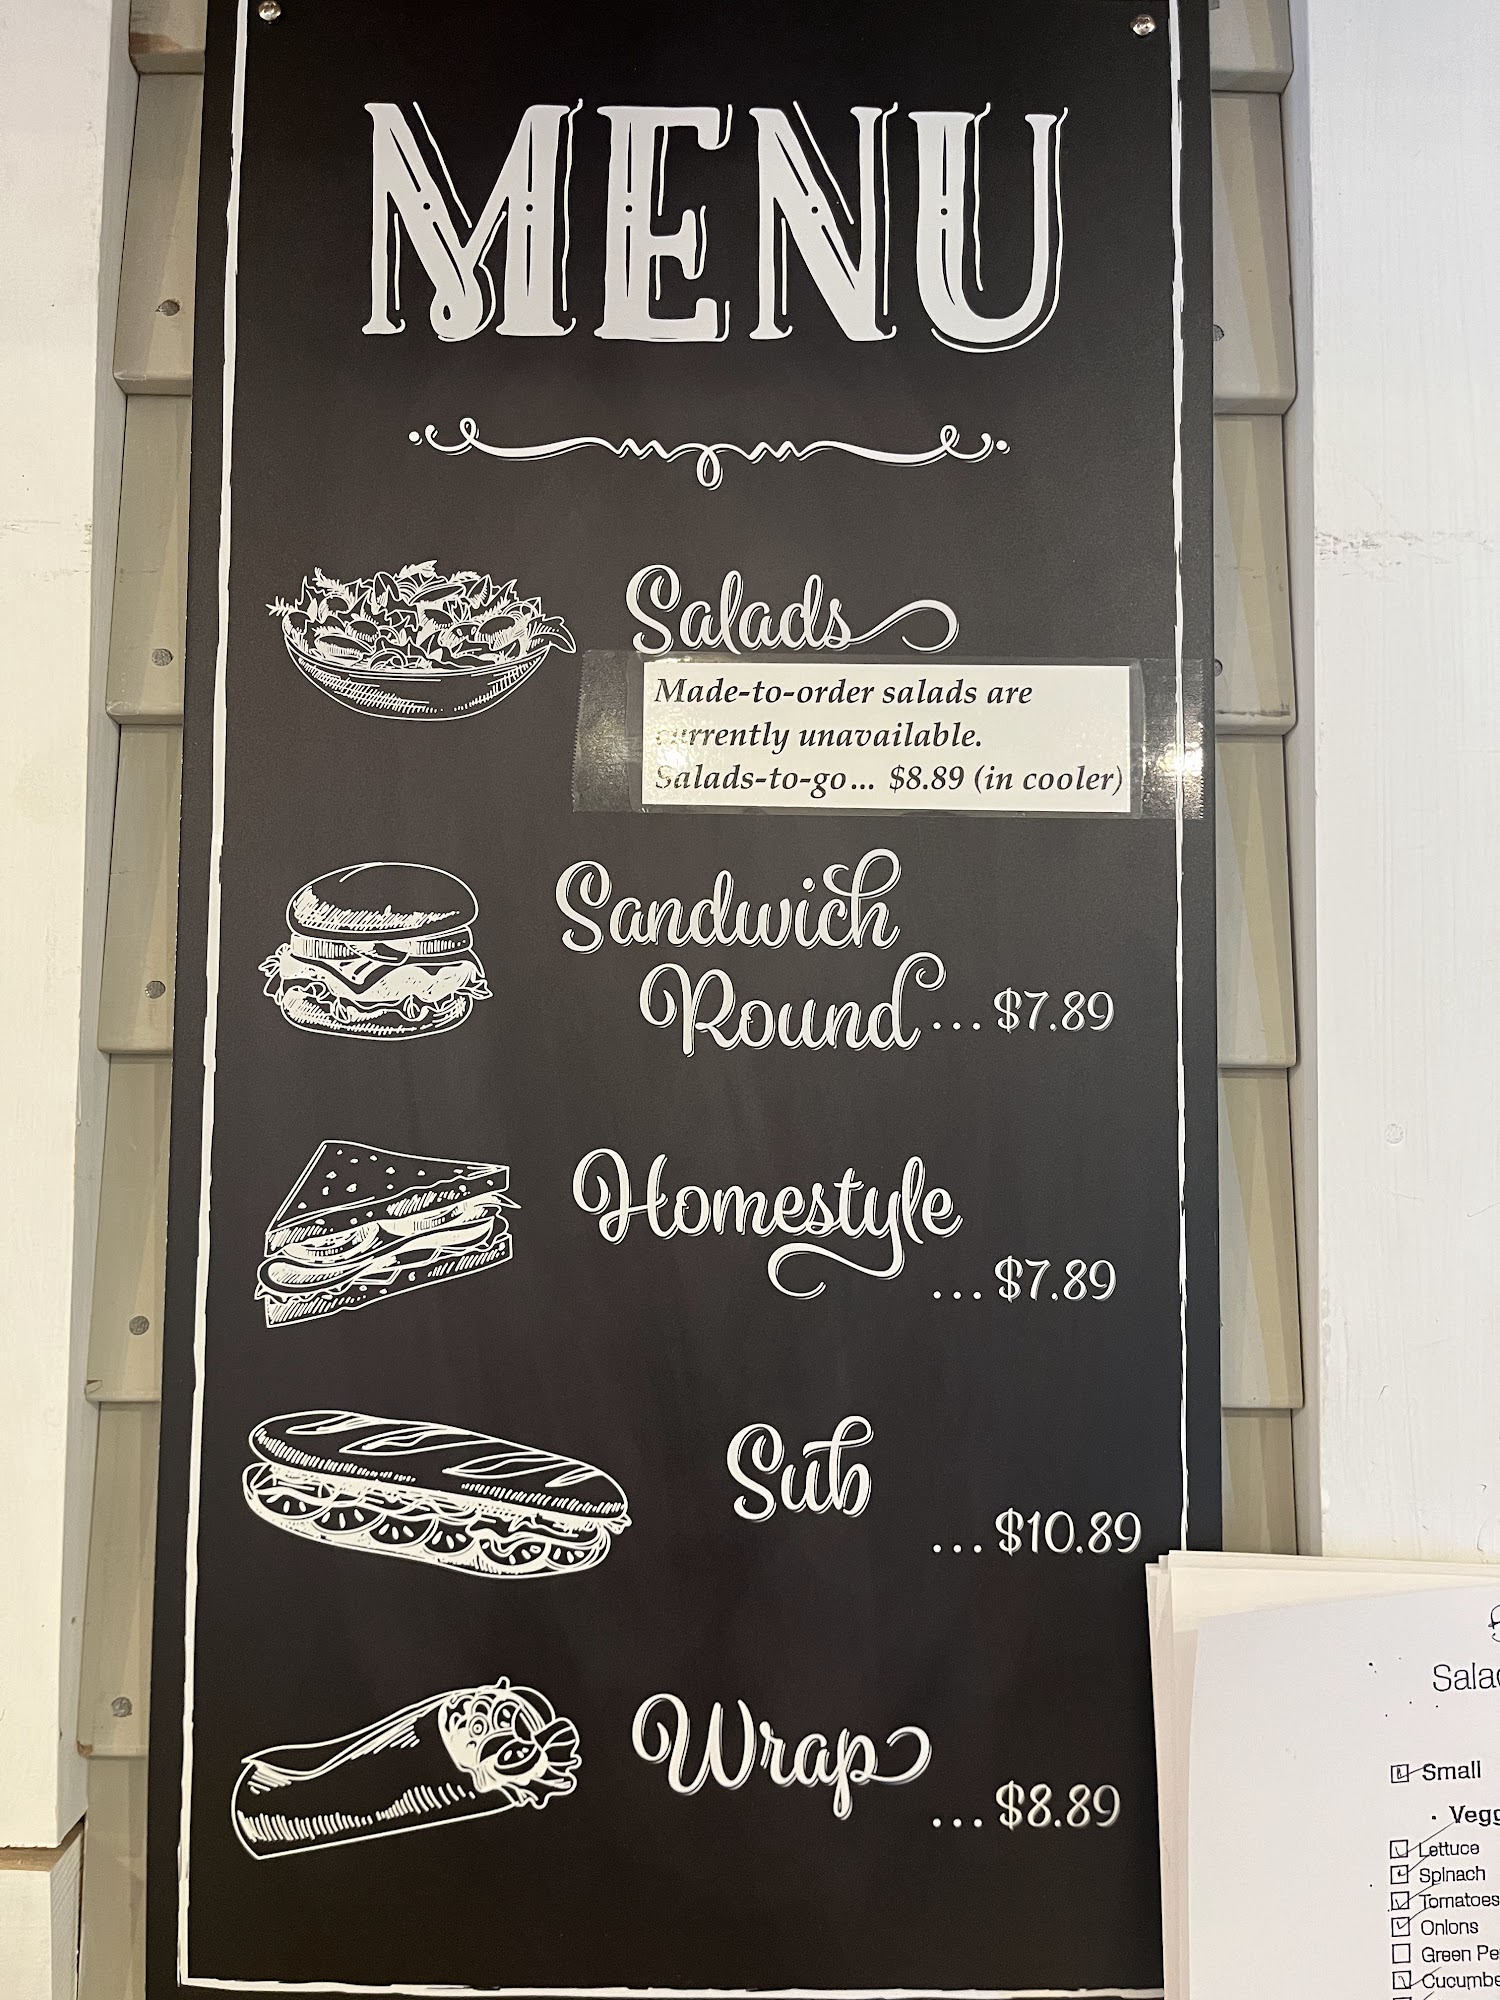 MENU
Salads
Made-to-order salads are
currently unavailable.
Salads-to-go... $8.89 (in cooler)
Sandwich
Round ... $7.89
Homestyle
... $7.89
Sub
... $10.89
Wrap
... $8.89
Small
Lettuce
Spinach
Tomatoes
Onions
Green